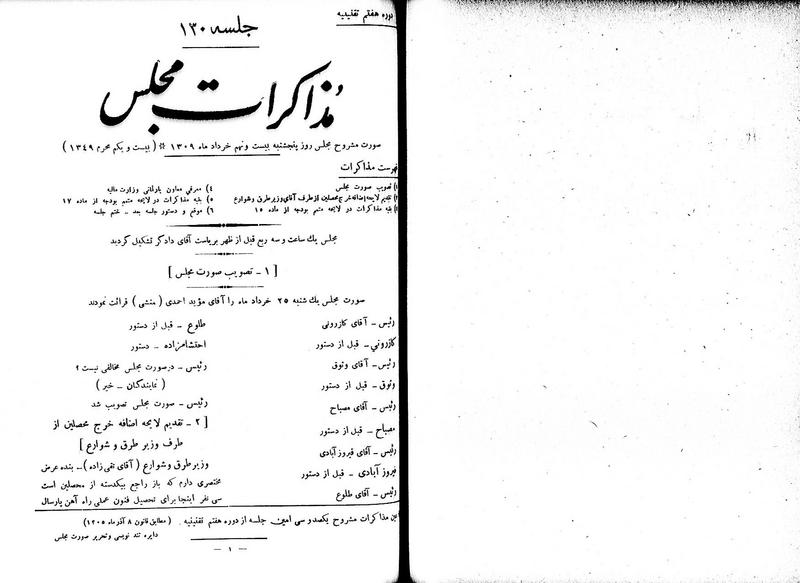 دوره هفتم تقنینیه
جلسه ۱۳۰
مذاکرات مجلس
صورت مشروح مجلس روز پنجشنبه بیست ونهم خرداد ماه ۱۳۰۹ * ( بیست و یکم محرم ۱۳۴۹ )
فهرست مذاکرات
۱) تصویب صورت مجلس
۲) تقدیم لایحه اضافه خرج محصلین از طرف آقای وزیر طرق و شوارع
۳) بقیه مذاکرات در لایحه متمم بودجه از ماده ۱۵
۴) معرفی معاون پارلمانی وزارت مالیه
۵) بقیه مذاکرات در لایحه متمم بودجه از ماده ۱۷
۶) موقع و دستور جلسه بعد ــ ختم جلسه
مجلس یك ساعت و سه ربع قبل از ظهر بریاست آقای دادگر تشکیل گردید
[ ۱ ــ تصویب صورت مجلس ]
صورت مجلس یك شنبه ۲۵ خرداد ماه را آقای مؤید احمدی ( منشی ) قرائت نمودند
رئیس ــ آقای کازرونی
کازرونی ــ قبل از دستور
رئیس ــ آقای وثوق
وثوق ــ قبل از دستور
رئیس ــ آقای مصباح
مصباح ــ قبل از دستور
رئیس ــ آقای فیروزآبادی
فیروز آبادی ــ قبل از دستور
رئیس ــ آقای طلوع
طلوع ــ قبل از دستور
احتشامزاده ــ دستور
رئیس ــ درصورت مجلس مخالفی نیست ؟
( نمایندگان ــ خیر )
رئیس ــ صورت مجلس تصویب شد
[ ۲ ــ تقدیم لایحه اضافه خرج محصلین از
طرف وزیر طرق و شوارع ]
وزیر طرق وشوارع ( آقای تقی زاده )ــ بنده عرض
مختصری دارم که باز راجع بیکدسته از محصلین است
سی نفر اینجا برای تحصیل فنون عملی راه آهن پارسال
عین مذاکرات مشروح یکصد و سی امین جلسه از دوره هفتم تقنینیه . ( مطابق قانون ۸ آذر ماه ۱۳۰۵ )
دایره تند نویسی وتحریر صورت مجلس
ــ ۱ ــ